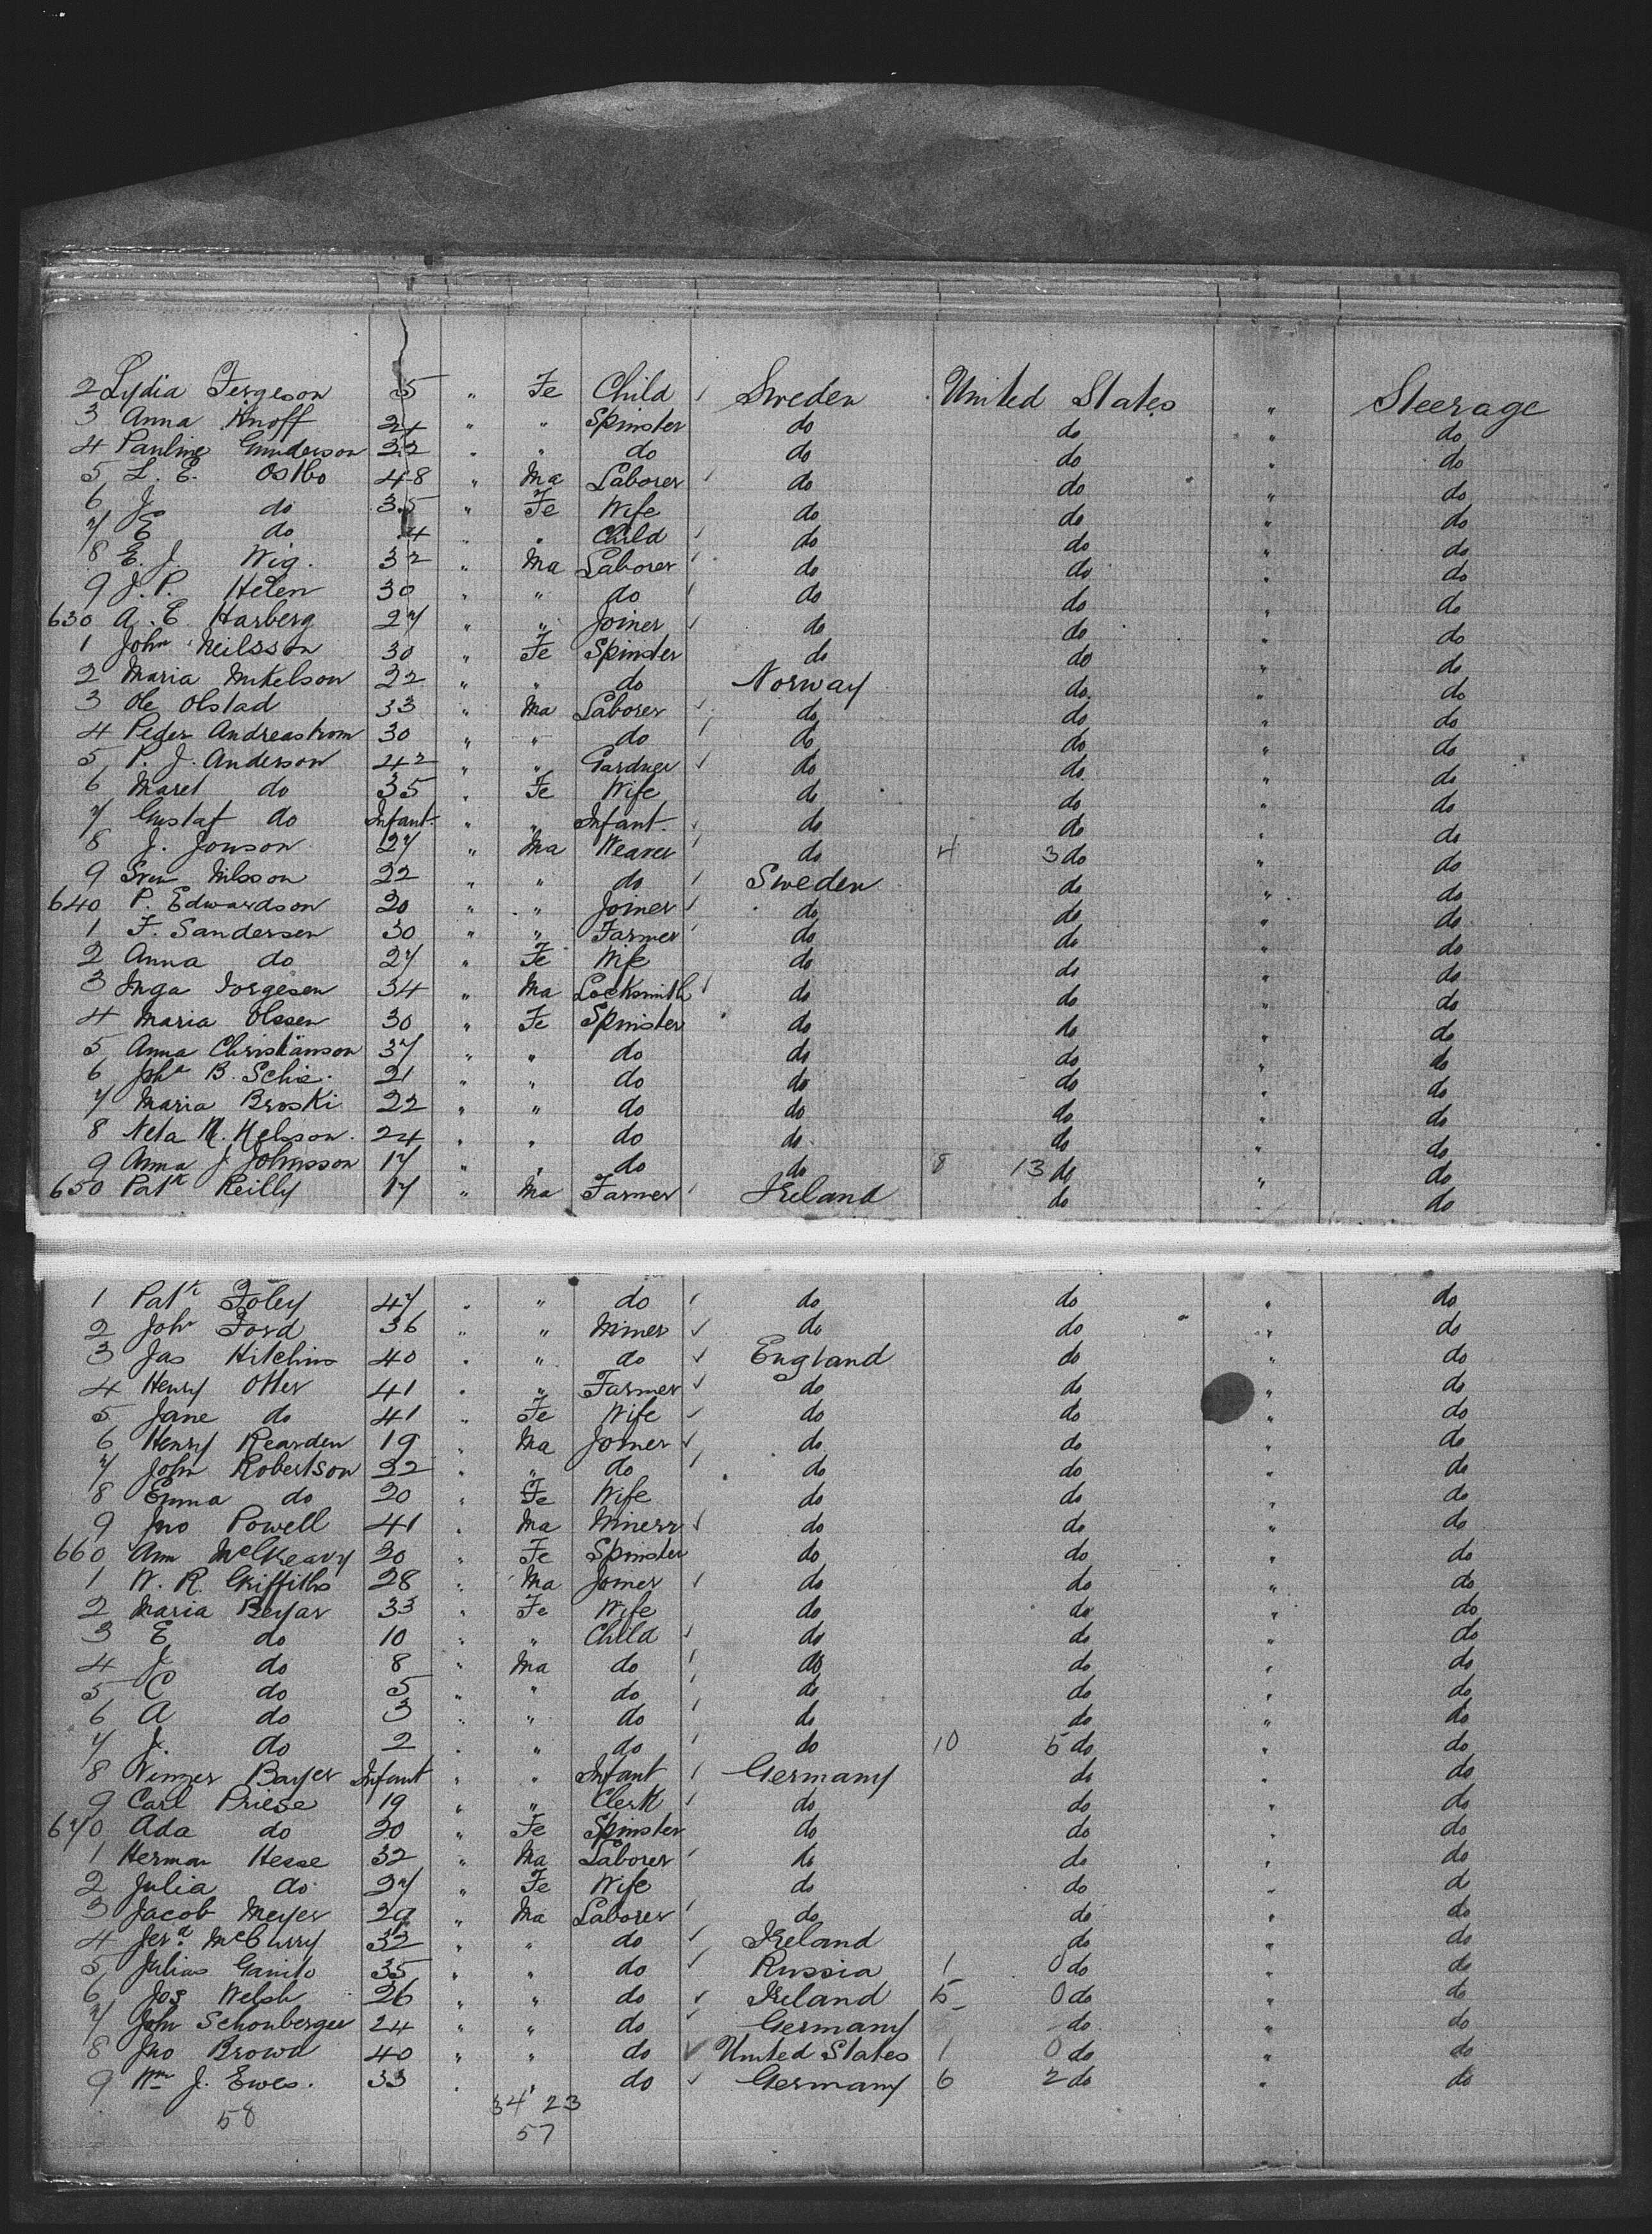 2 Lydia Fergeson 5 " Fe Child Sweden United States " Steerage
3 Anna Knoff 24 " " Spinster do do " do
4 Pauline Gunderson 22 " " do do do " do
5 L. E. Ostbo 48 " Ma Laborer do do " do
6 J. do 35 " Fe Wife do do " do
7 E do 4 " " Child do do " do
8 E. J. Wig. 32 " Ma Laborer do do " do
9 J. P. Helen 30 " " do do do " do
630 A. E Harberg 27 " " Joiner do do " do
1 John Neilsson 30 " Fe Spinster do do " do
2 Maria Mikelson 22 " " do Norway do " do
3 Ole Olstad 33 " Ma Laborer do do " do
4 Peder Andreastrom 30 " " do do do " do
5 P. J. Anderson 42 " " Gardner do do " do
6 Maret do 35 " Fe Wife do do " do
7 Gustaf do Infant " " Infant. do do " do
8 J. Jonson 27 " Ma Weaver do 4 3 do " do
9 Sven Nilsson 22 " " do Sweden do " do
640 P. Edwardson 20 " " Joiner do do " do
1 F. Sandersen 30 " " Farmer do do " do
2 Anna do 27 " Fe Wife do do " do
3 Inga Jorgesen 34 " Ma Locksmith do do " do
4 Maria Olssen 30 " Fe Spinster do do " do
5 Anna Christianson 37 " " do do do " do
6 Joha B. Schie. 21 " " do do do " do
7 Maria Broski 22 " " do do do " do
8 Neta M. Nelsson. 24 " " do do do " do
9 Anna J Johnsson 17 " " do do 8 13 do " do
650 Patk Reilly 17 " Ma Farmer Ireland do " do
1 Patk Foley 47 " " do do do " do
2 John Ford 36 " " Miner do do " do
3 Jas Hitchins 40 " " do England do " do
4 Henry Otter 41 " " Farmer do do " do
5 Jane do 41 " Fe Wife do do " do
6 Henry Rearden 19 " Ma Joiner do do " do
7 John Robertson 22 " " do do do " do
8 Emma do 20 " Fe Wife do do " do
9 Jno Powell 41 " Ma Minerr do do " do
660 Ann McKeavy 20 " Fe Spinster do do " do
1 W. R. Griffiths 28 " Ma Joiner do do " do
2 Maria Beyar 33 " Fe Wife do do " do
3 E do 10 " " Child do do " do
4 J do 8 " Ma do do do " do
5 C do 5 " " do do do " do
6 A do 3 " " do do do " do
7 J. do 2 " " do do 10 5 do " do
8 Bayer Infant " " Infant Germany do " do
9 Carl Priese 19 " " Clerk do do " do
670 Ada do 20 " Fe Spinster do do " do
1 Herman Hesse 32 " Ma Laborer do do " do
2 Julia do 27 " Fe Wife do do " do
3 Jacob Meyer 29 " Ma Laborer do do " do
4 Jera McCurry 32 " " do Ireland do " do
5 Julius 35 " " do Russia 1 0 do " do
6 Jos Welsh 26 " " do Ireland 5 0 do " do
7 John Schonberger 24 " " do Germany do " do
8 Jno Brown 40 " " do United States 1 0 do " do
9 Wm J. Ewes. 33 " " do Germany 6 2 do " do
34 23
58
57